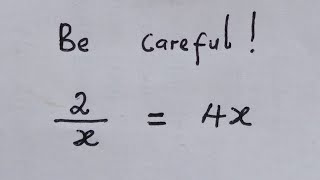 Be careful!
2/x = 4x